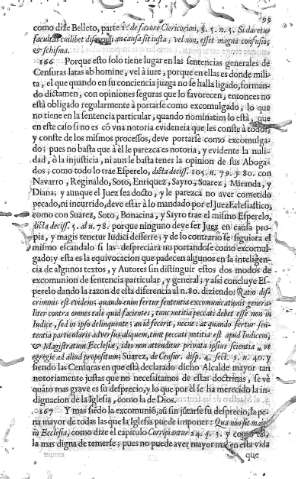 99
como dize Belleto, parte 1. de favore Clericorum, §. 5. n. 5. Si daretur
facultas cuilibet an censura sit iusta, vel non, esset magna confusio,
& schisma.
166 Porque esto solo tiene lugar en las sentencias generales de
Censuras latas ab homine, vel à iure, porque en ellas es donde milita,
el que quando en su conciencia juzga no se halla ligado, formando
dictamen, con opiniones seguras que lo favorecen, entonces no
està obligado regularmente à portarse como excomulgado, lo que
no tiene en la sentencia particular, quando nominatim lo està, que
en este caso si no es cõ vna notoria evidencia que les conste à todos,
y conste de los mismos processos, deve portarse como excomulgado;
pues no basta que à èl le parezca es notoria, y evidente la nulidad,
ò la injusticia, ni aun le basta tener la opinion de sus Abogados;
como todo lo trae Esperelo, dicta decis. 105. n. 79. & 80. con
Navarro, Reginaldo, Soto, Enriquez, Sayro, Suarez, Miranda, y
Diana: y aunque el Juez sea docto, y le parezca no aver cometido
pecado, ni incurrido, deve estar à lo mandado por el Juez Eclesiastico,
como con Suarez, Soto, Bonacina, y Sayro trae el mismo Esperelo,
dicta decis. 5. à n. 78. porque ninguno deve ser Juez en causa propia,
y magis tenetur Iudici deferre; y de lo contrario se siguiera el
mismo escandalo si las despreciàra no portandose como excomulgado;
y esta es la equivocacion que padecen algunos en la inteligencia
de algunos textos, y Autores sin distinguir estos dos modos de
excomunion de sentencia particular, y general; y assi concluye Esperelo
dando la razon de esta diferencia al n. 80. diziendo: Ratio discriminis
est evidens quando enim fertur sententia excommunicationis generaliter
contra omnes tale quid facientes, tunc notitia peccati debet esse non in
Iudice, sed in ipso delinquente: an id fecerit, necne: at quando fertur sententia
particularis adversus aliquem, tunc peccati notitia est apud Iudicem,
& Magistratum Ecclesiæ, ideo non attenditur privata ipsius scientia
egregie ad aliud propositum; Suarez, de Censur. disp. 4. sect. 5. n. 40. y
siendo las Censuras en que està declarado dicho Alcalde mayor tan
notoriamente justas que no necessitamos de estas doctrinas, se ve
quàto mas grave es su desprecio, y lo que por èl se ha merecido la indignacion
de la Iglesia, como la de Dios.
167 Y mas siẽdo la excomuniõ, aũ sin juntarse su desprecio, la pena
mayor de todas las que la Iglesia puede imponer: Qua non est maior
in Ecclesia, como dize el capitulo Corripiantur 24. q. 3. y como tal,
la mas digna de temerse; pues no puede aver mayor mal en esta vida
que